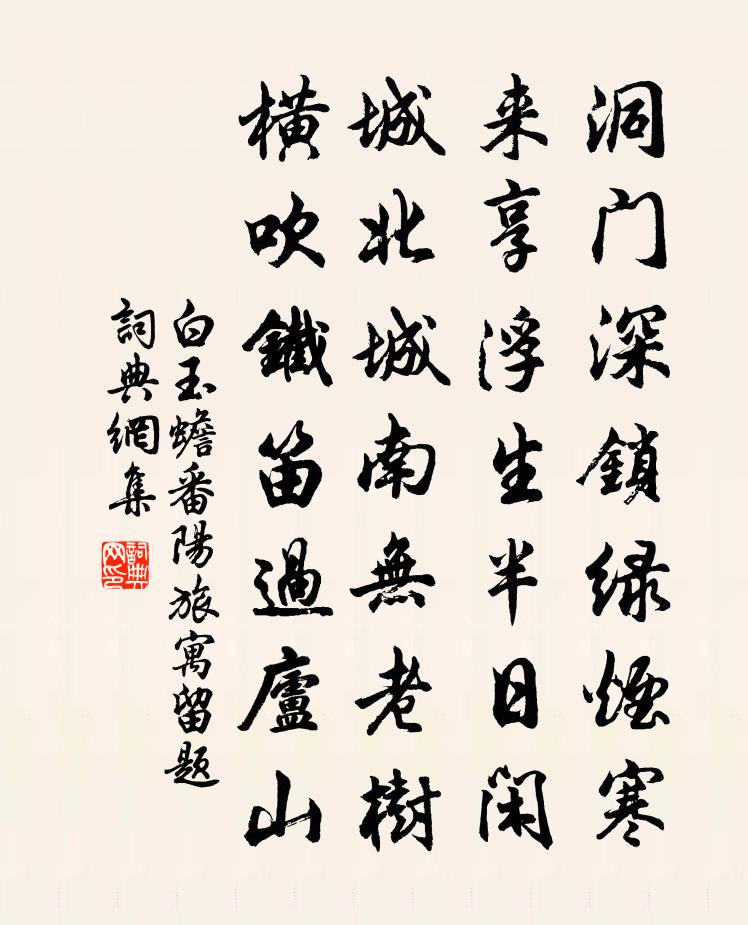 洞门深鎖緑煙寒
来享浮生半日闲
城北城南無老樹
横吹鐵笛過廬山
白玉蟾番陽旅寓留题
詞典網集
詞典网印